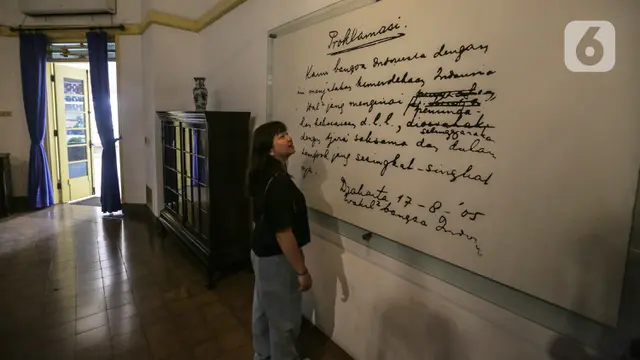 Proklamasi.
Kami bangsa Indonesia dengan
ini menjatakan kemerdekaan Indonesia
Hal2 jang mengenai
d.l.l.,
dengan tjara saksama dan dalam
tempoh jang sesingkat-singkat
nja.
Djakarta 17-8-'05
Wakil2 bangsa Indon
6